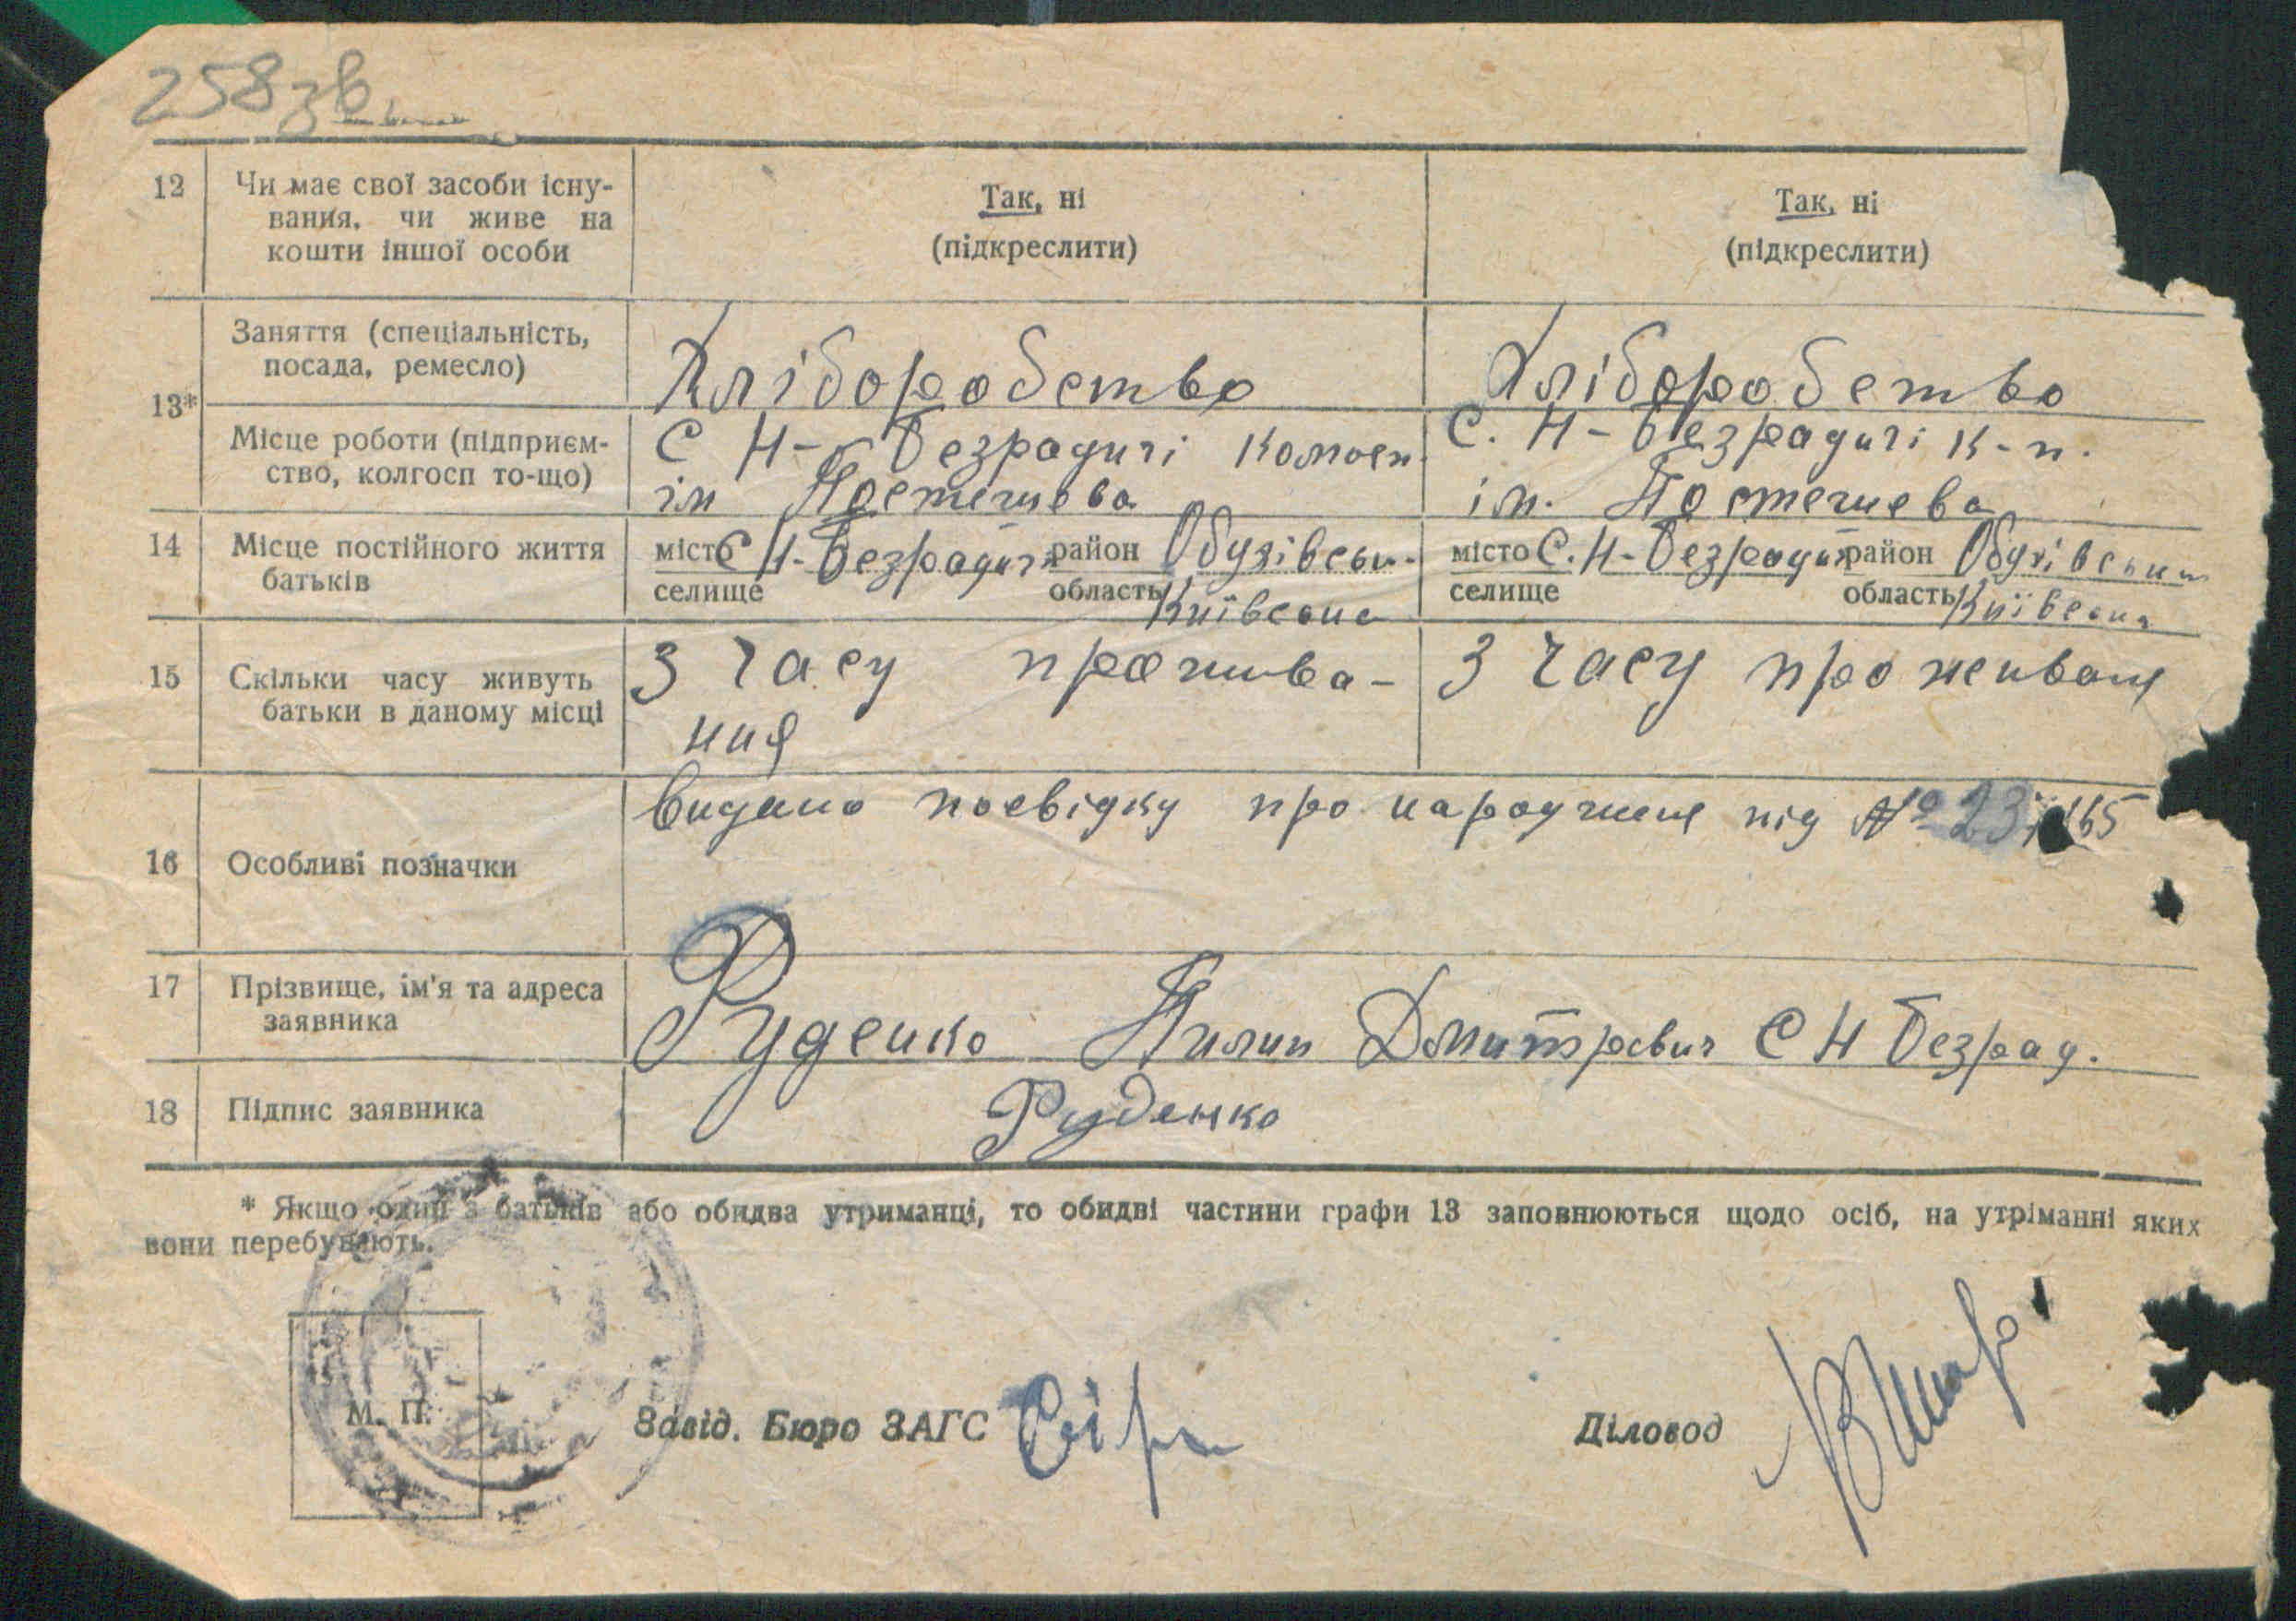 258зв.
12 Чи має свої засоби існу-
вання, чи живе на
кошти іншої особи
Так, ні
(підкреслити)
Так, ні
(підкреслити)
13*
Заняття (спеціальність,
посада, ремесло)
Хліборобство
Хліборобство
Місце роботи (підприєм-
ство, колгосп то-що)
С Н-Безрадичі
ім Постечиева
С. Н-Безрадичі К-п.
ім. Постечиева
14 Місце постійного життя
батьків
місто С Н-Безрадичі район Обухівськ.
селище область Київська
місто С.Н-Безрадичі район Обухівськи
селище область Київська
15 Скільки часу живуть
батьки в даному місці
З часу прожива-
ння
З часу проживаня
16 Особливі позначки
Видано посвідку про народження під № 23
17 Прізвище, ім'я та адреса
заявника
Руденко Пилип Дмитрович С Н Безрад.
18 Підпис заявника
Руденко
* Якщо один з батьків або обидва утриманці, то обидві частини графи 13 заповнюються щодо осіб, на утріманні яких
вони перебувають.
М. П.
Завід. Бюро ЗАГС
Діловод